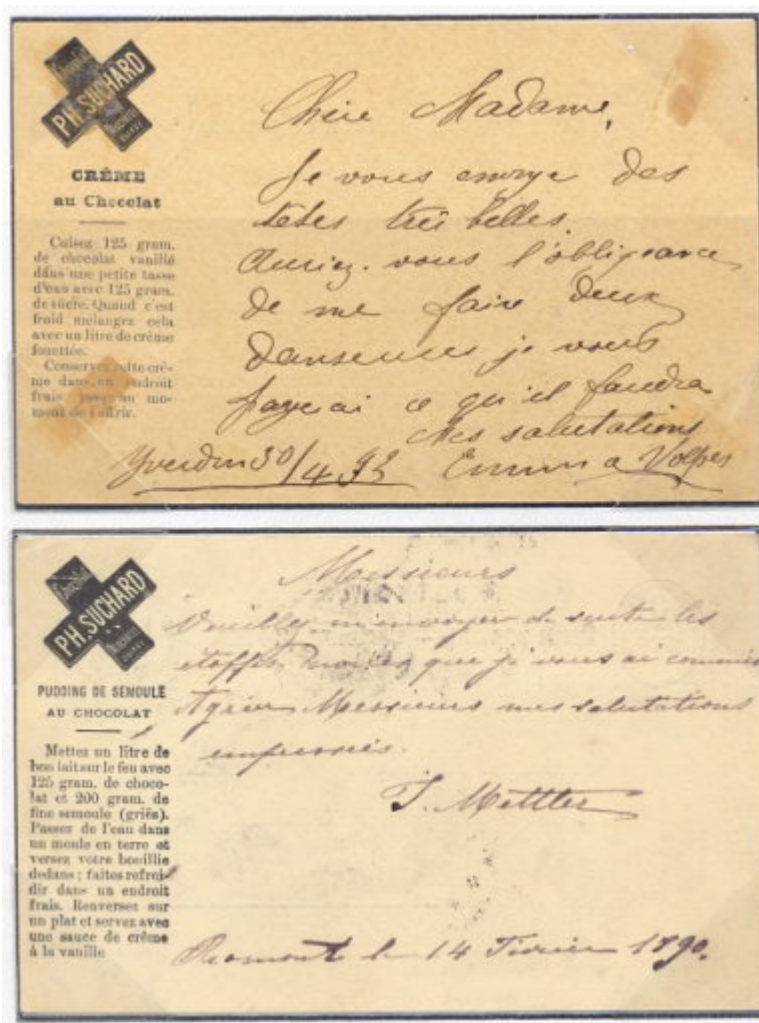 PH. SUCHARD
CRÊME
au Chocolat
Cuisez 125 gram.
de chocolat vanillé
dans une petite tasse
d'eau avec 125 gram.
de sucre. Quand c'est
froid mélangez cela
avec un litre de crême
fouettée.
Conservez cette crê-
me dans un endroit
frais jusqu'au mo-
ment de l'offrir.
Chère Madame,
Je vous envoye des
têtes très belles.
Auriez-vous l'obligeance
de me faire deux
danseuses je vous
payerai ce qu'il faudra
Mes salutations
Yverdon 30/4 93 Emma Volper
PH. SUCHARD
PUDDING DE SEMOULE
AU CHOCOLAT
Mettez un litre de
bon lait sur le feu avec
125 gram. de choco-
lat et 200 gram. de
fine semoule (griès).
Passez de l'eau dans
un moule en terre et
versez votre bouillie
dedans; faites refroi-
dir dans un endroit
frais. Renversez sur
un plat et servez avec
une sauce de crême
à la vanille
Messieurs
Veuillez m'envoyer de suite les
étoffes que je vous ai commis
Agréer Messieurs mes salutations
empressées.
J. Mettler
Romont le 14 Février 1890.